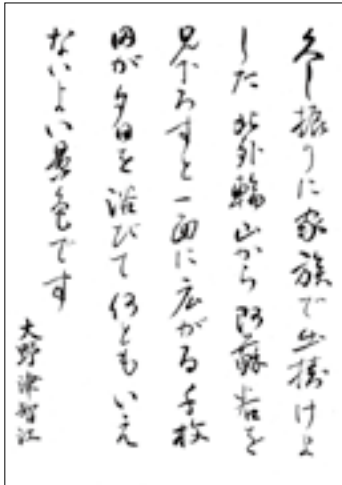 久し振りに家族で出掛けま
した 北外輪山から阿蘇谷を
見下ろすと一面に広がる千枚
田が夕日を浴びて何ともいえ
ないよい景色です
大野津智江